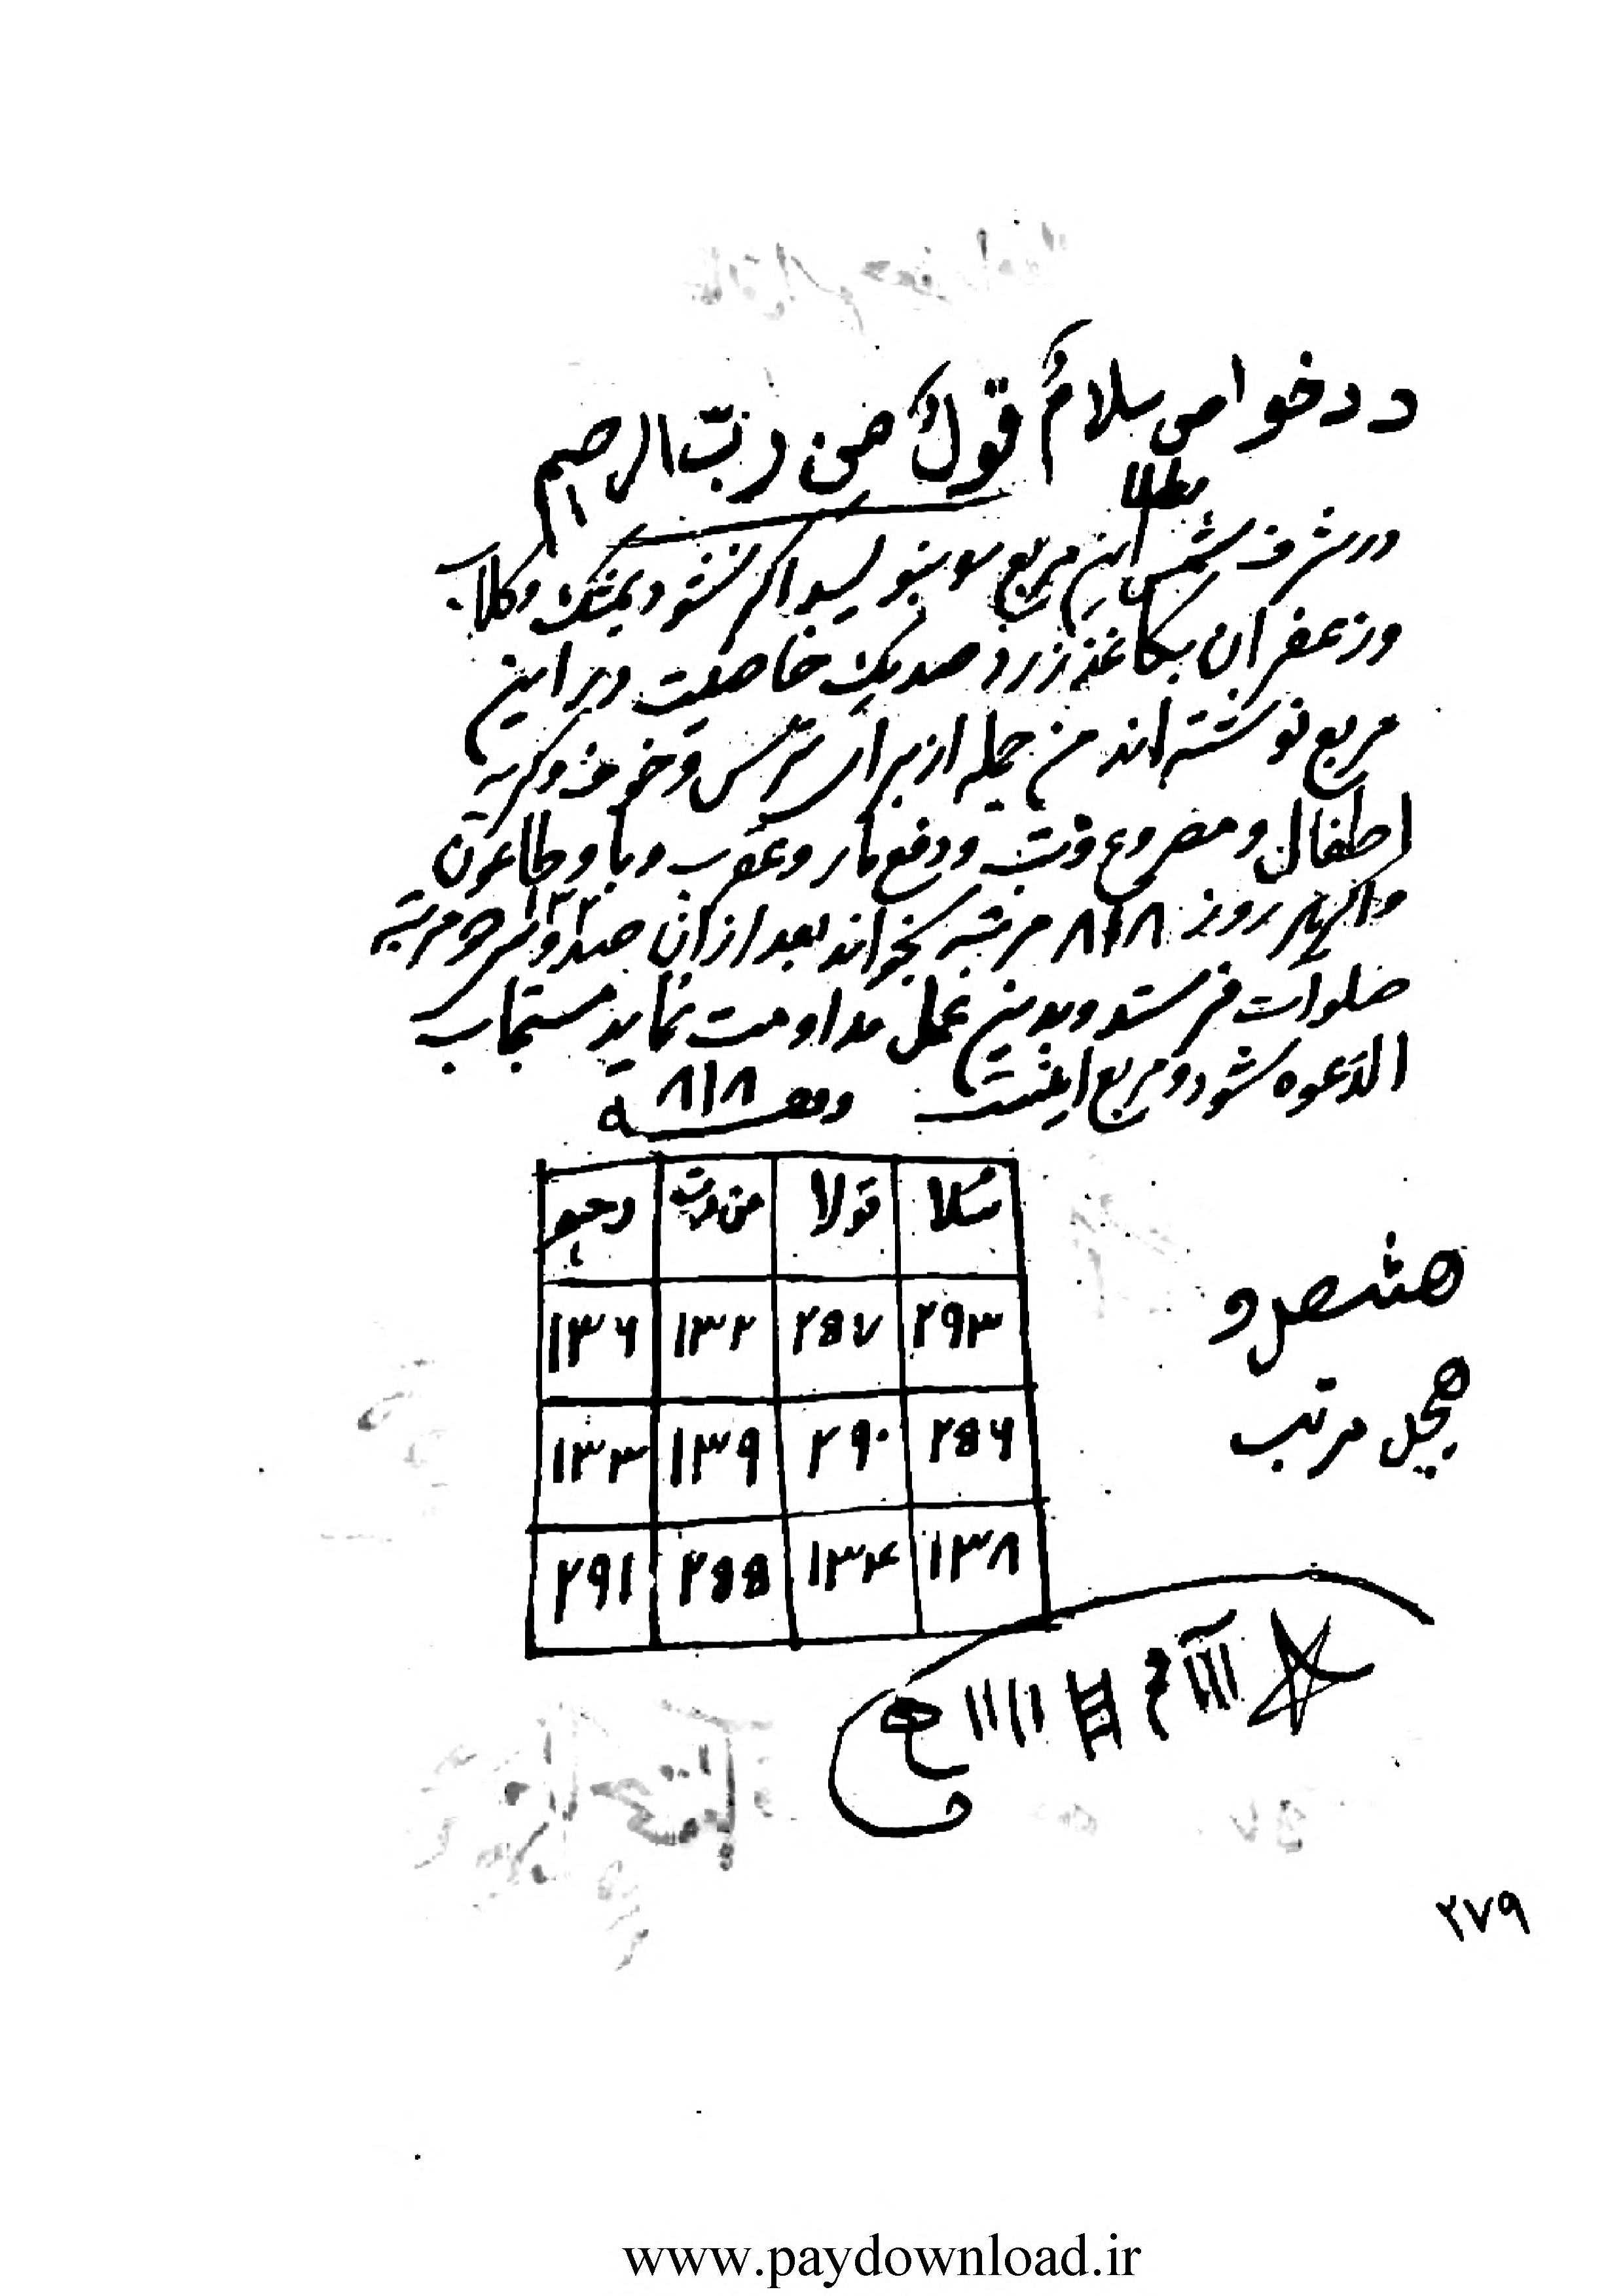 در خواص سلامٌ قولاً من ربّ الرحیم
بطلا
در شرف شمس این مربع بنویسد اگر نشود بمشک و گلاب
و زعفران بکاغذ زرد صد یک خاصیت در این
مربع نوشته اند من جمله از برای ترس و خوف و گریه
اطفال و مصروع و تب و دفع مار و عقرب و وبا و طاعون
و اگر هر روز ۸۱۸ مرتبه بخواند بعد از آن صد و سی و دو مرتبه
۱۳۲
صلوات فرستد و بدین عمل مداومت نماید مستجاب
الدعوه شود و مربع اینست وفقه ۸۱۸
سلا قولا من رب رحیم
۲۹۳ ۲۵۷ ۱۳۲ ۱۳۶
۲۵۶ ۲۹۰ ۱۳۹ ۱۳۳
۱۳۸ ۱۳۴ ۲۵۵ ۲۹۱
مرتب
۲۷۹
www.paydownload.ir